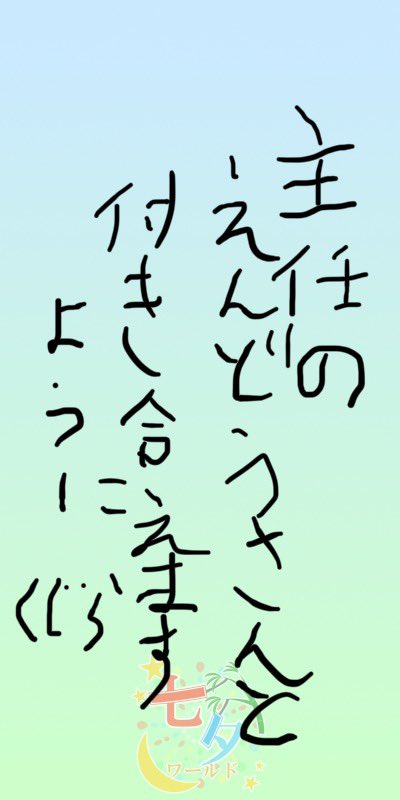 主任の
えんどうさんと
付き合えます
ように
くじら
七夕
ワールド